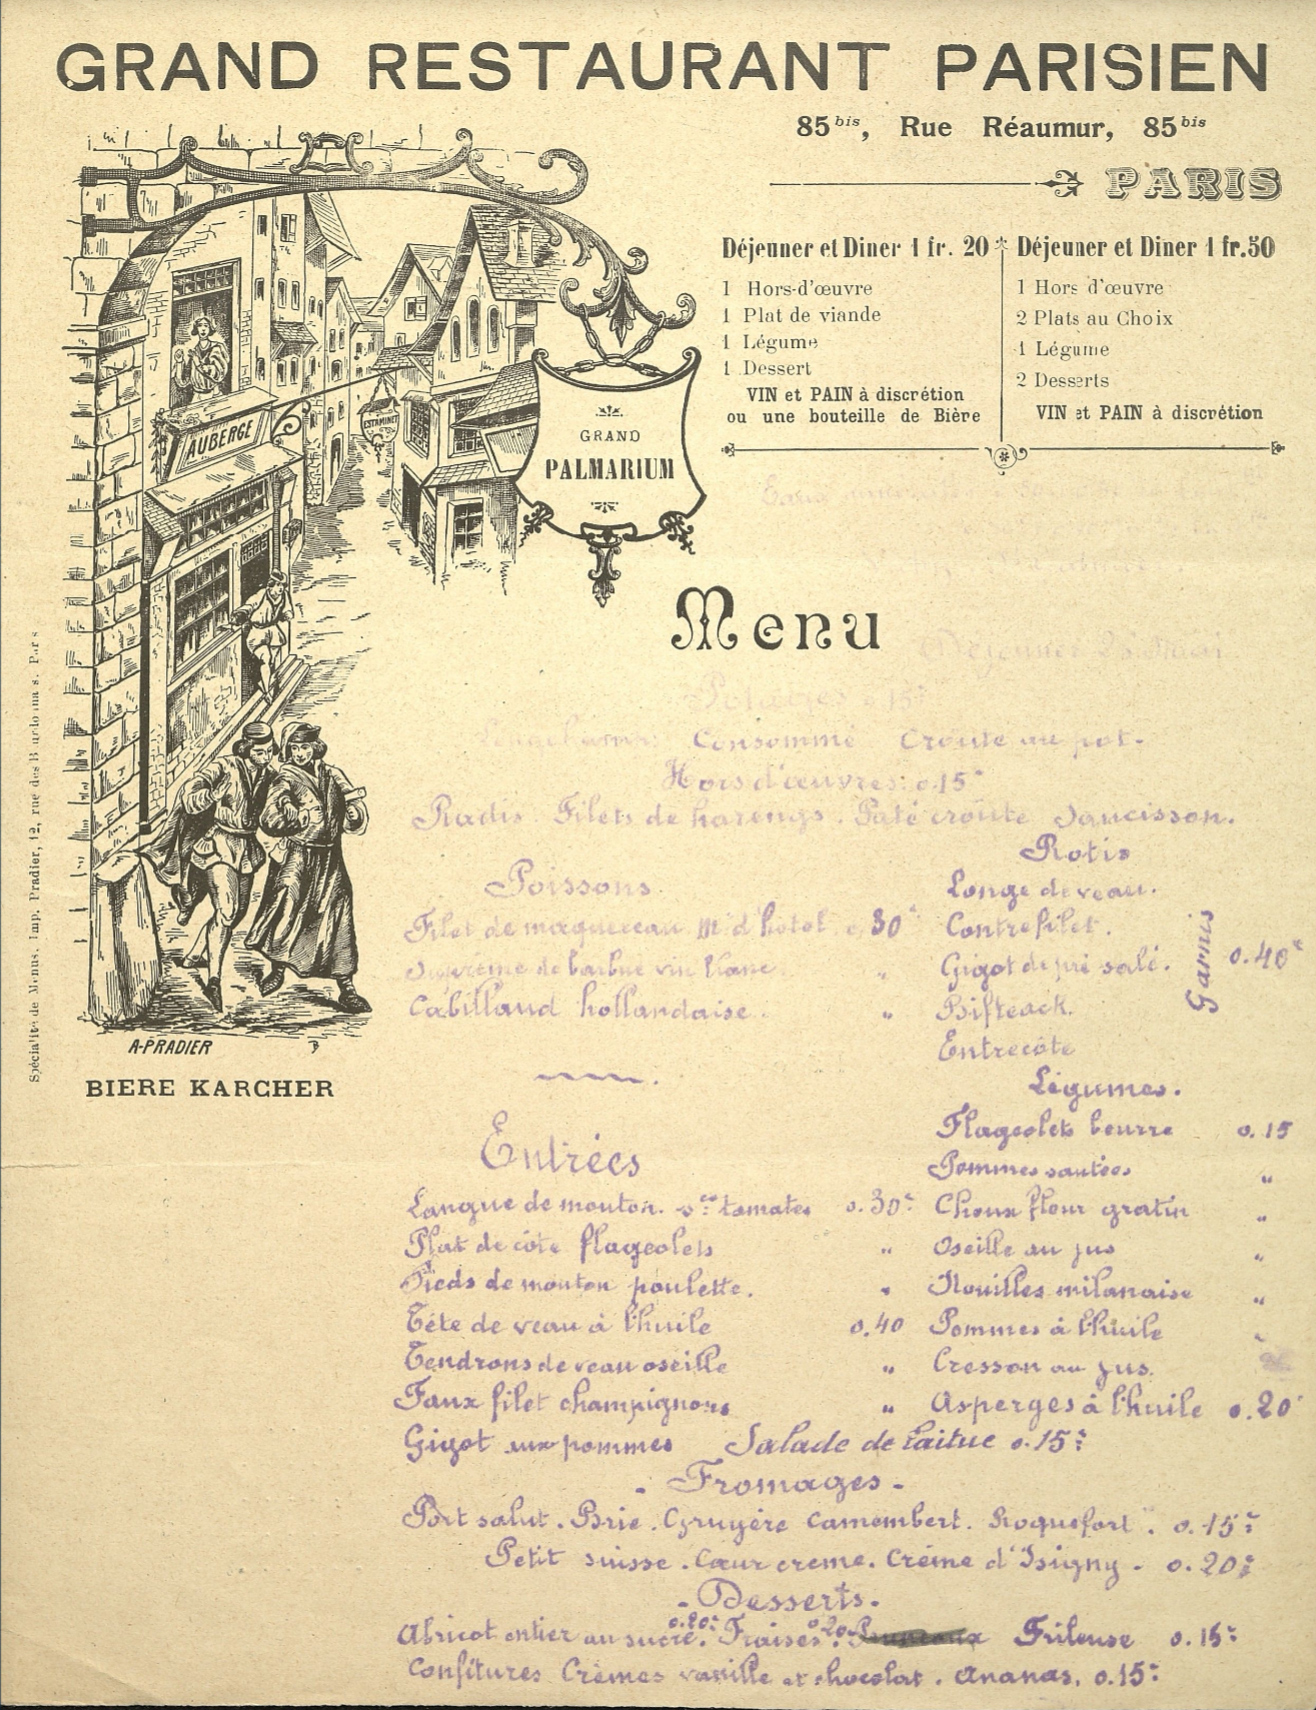 GRAND RESTAURANT PARISIEN
85 bis, Rue Réaumur, 85 bis
PARIS
Déjeuner et Diner 1 fr. 20
1 Hors-d'œuvre
1 Plat de viande
1 Légume
1 Dessert
VIN et PAIN à discrétion
ou une bouteille de Bière
Déjeuner et Diner 1 fr.50
1 Hors d'œuvre
2 Plats au Choix
1 Légume
2 Desserts
VIN et PAIN à discrétion
AUBERGE
ESTAMINET
GRAND
PALMARIUM
Menu
Déjeuner
Potages 0.15c
Longchamp: Consommé Croute au pot.
Hors d'œuvres: 0.15c
Radis. Filets de harengs. Paté croûte Saucisson.
Poissons.
Filet de maquereau M d'hotel 0.30c
Suprême de barbue vin blanc. "
Cabillaud hollandaise. "
Entrées
Langue de mouton. sce tomates 0.30c
Plat de côte flageolets "
Pieds de mouton poulette. "
Tête de veau à l'huile 0.40
Tendrons de veau oseille "
Faux filet champignons "
Gigot aux pommes
Rotis
Longe de veau.
Contrefilet.
Gigot de pré salé.
Bifteack.
Entrecôte
Garnis 0.40c
Légumes.
Flageolets beurre 0.15
Pommes sautées "
Choux fleur gratin "
Oseille au jus "
Nouilles milanaise "
Pommes à l'huile "
Cresson au jus.
Asperges à l'huile 0.20c
Salade de laitue 0.15c
- Fromages -
Port salut. Brie. Gruyère Camembert. Roquefort. 0.15c
Petit suisse. Cœur creme. Crème d'Isigny - 0.20c
- Desserts. -
Abricot entier au sucre. 0.20c Fraises 0.20c Frileuse 0.15c
Confitures Crèmes vanille et chocolat. Ananas. 0.15c
A-PRADIER
B
BIERE KARCHER
Spécialité de Menus. Imp. Pradier, 12, rue des Paris